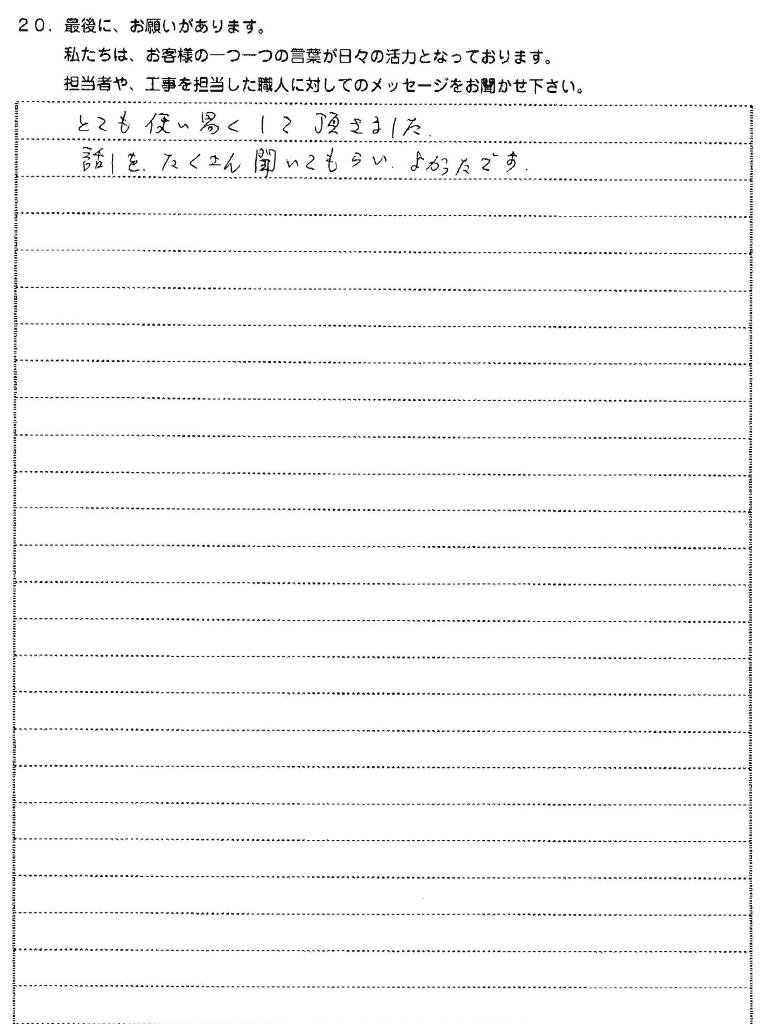 20. 最後に、お願いがあります。
私たちは、お客様の一つ一つの言葉が日々の活力となっております。
担当者や、工事を担当した職人に対してのメッセージをお聞かせ下さい。
とても使い易くして頂きました.
話しを.たくさん聞いてもらい.よかったです.